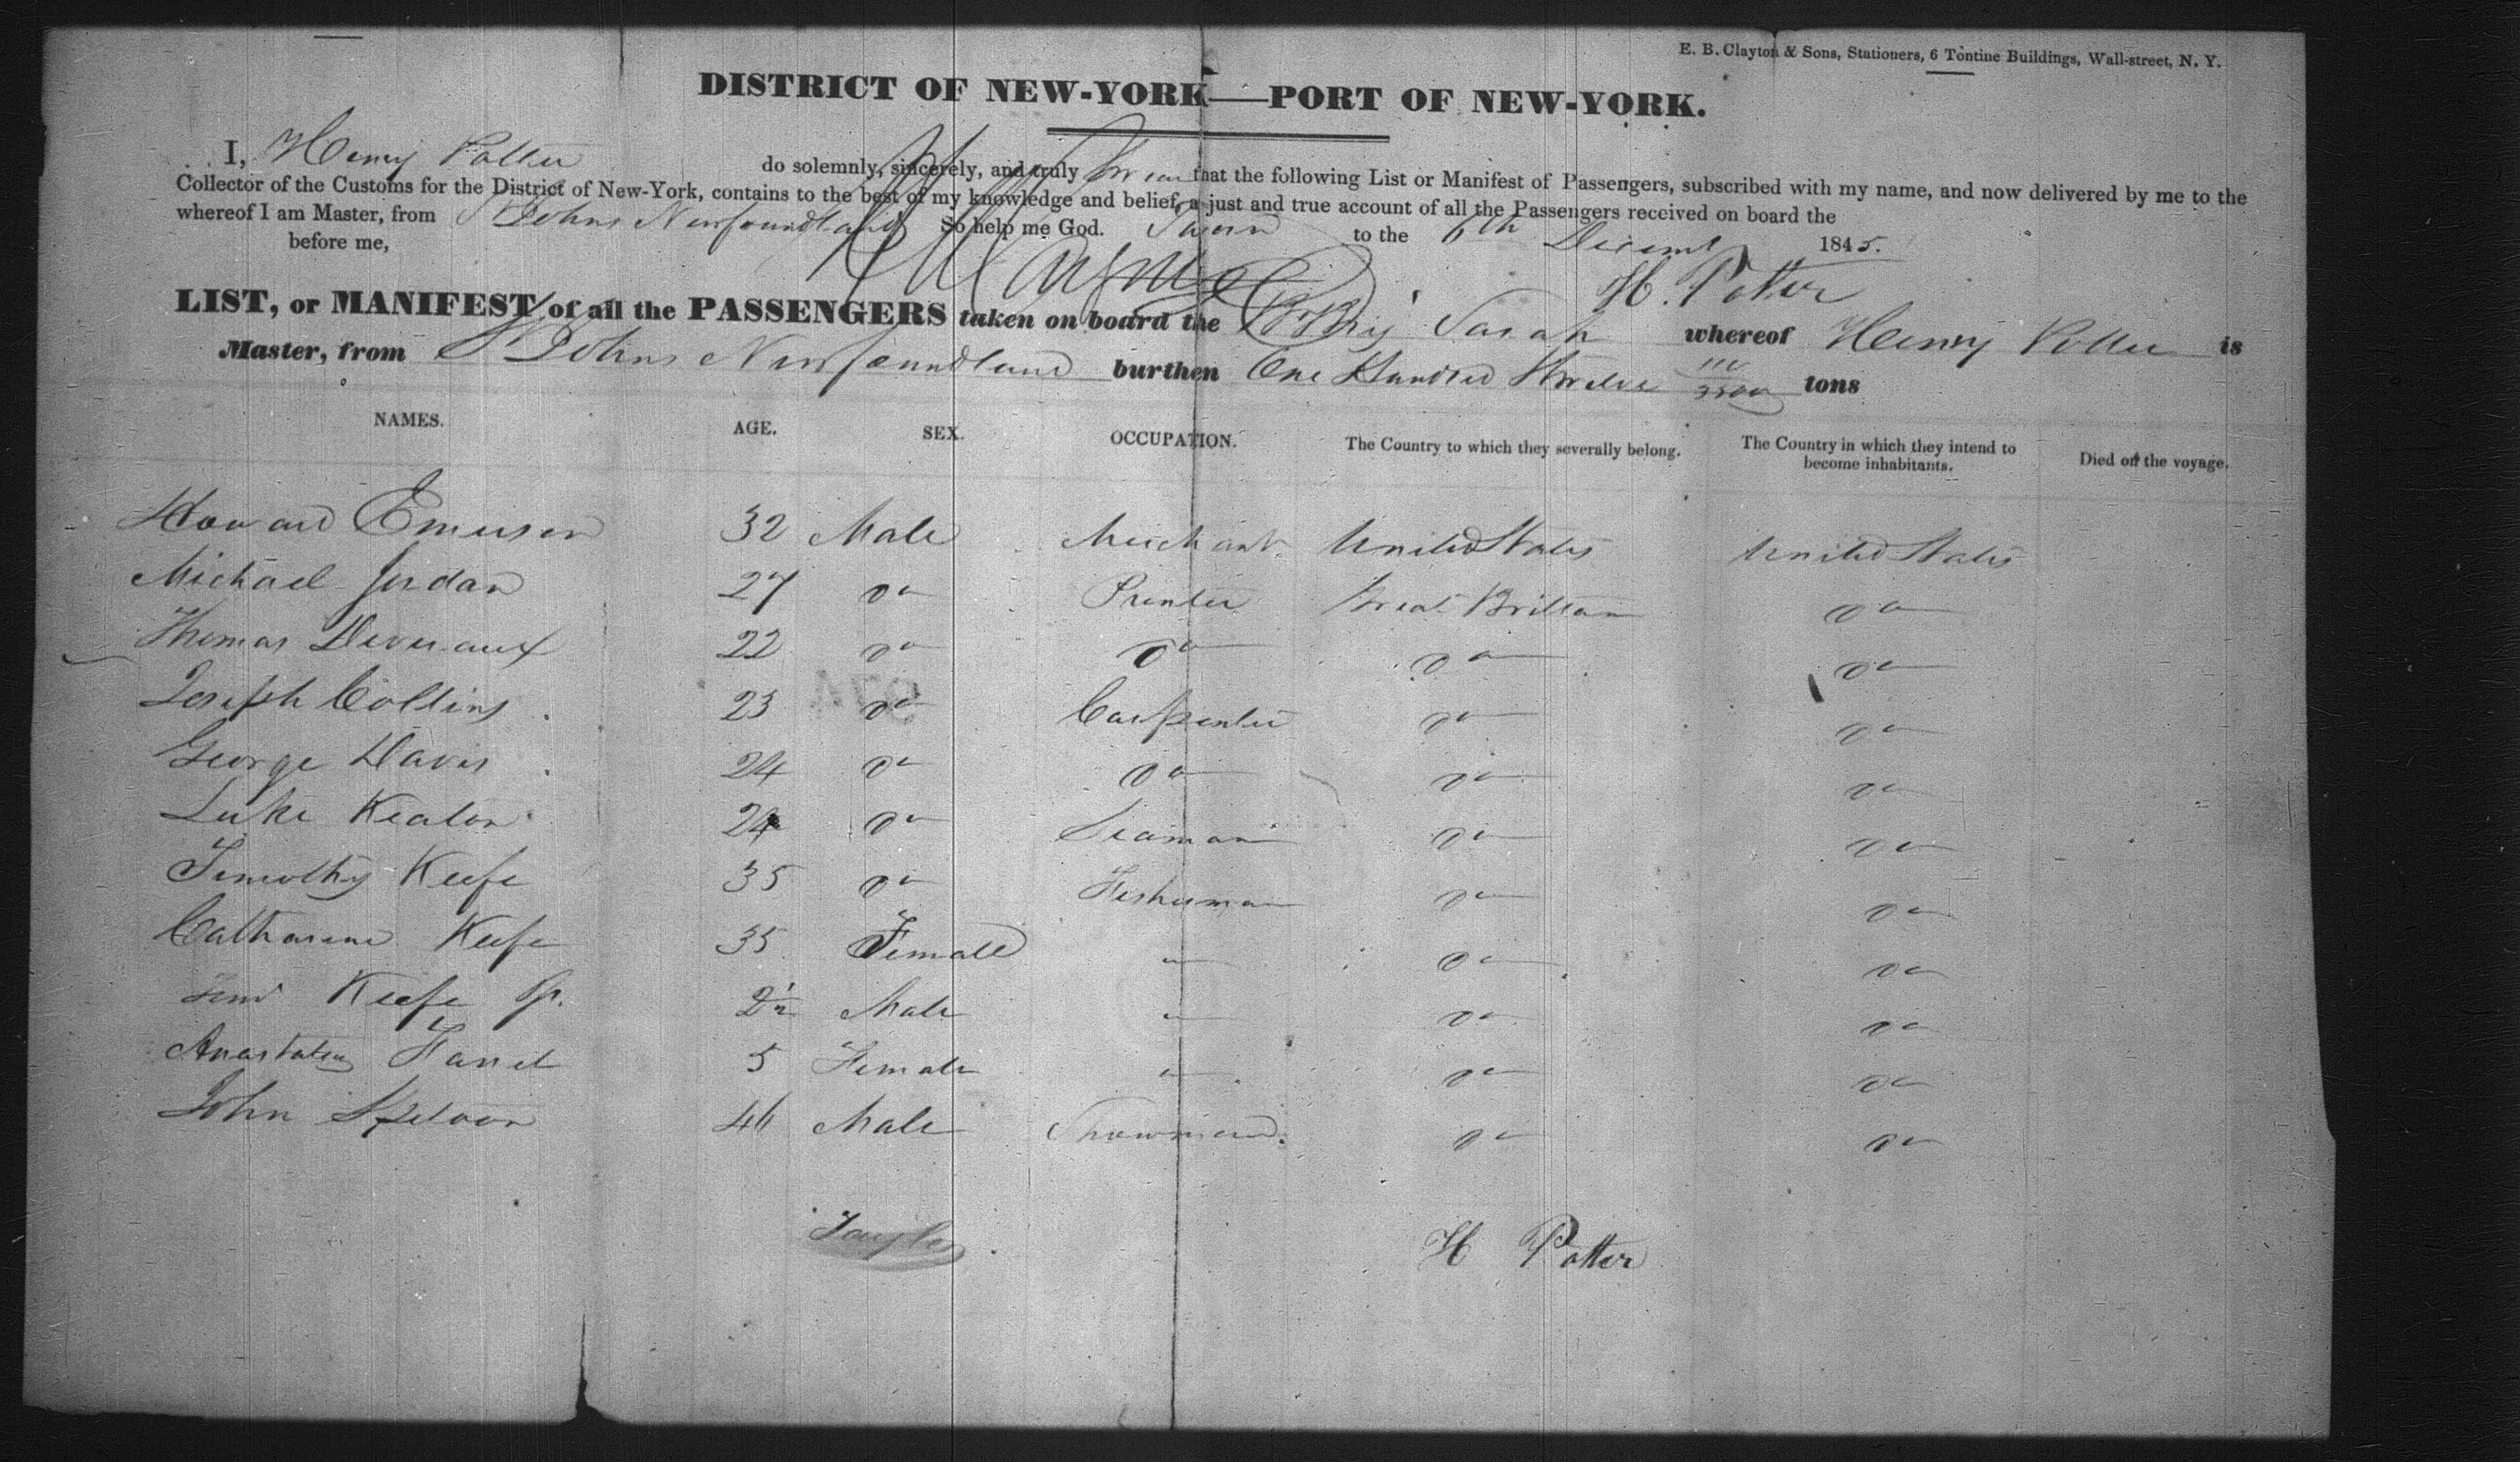 E. B. Clayton & Sons, Stationers, 6 Tontine Buildings, Wall-street, N. Y.
DISTRICT OF NEW-YORK—PORT OF NEW-YORK.
I, Henry Potter do solemnly, sincerely, and truly Swear that the following List or Manifest of Passengers, subscribed with my name, and now delivered by me to the
Collector of the Customs for the District of New-York, contains to the best of my knowledge and belief, a just and true account of all the Passengers received on board the
whereof I am Master, from St Johns Newfoundland So help me God.
Sworn to the 6th Decemr 1845.
before me,
H. Potter
LIST, or MANIFEST of all the PASSENGERS taken on board the Brig Sarah whereof Henry Potter is
Master, from St Johns Newfoundland burthen One Hundred & Twelve tons
NAMES. AGE. SEX. OCCUPATION. The Country to which they severally belong. The Country in which they intend to become inhabitants. Died on the voyage.
Howard Emerson 32 Male Merchant United States United States
Michael Jordan 27 Do Printer Great Brittan Do
Thomas Deveraux 22 Do Do Do Do
Joseph Collins 23 Do Carpenter Do Do
George Davis 24 Do Do Do Do
Luke Keaton 24 Do Seaman Do Do
Timothy Keefe 35 Do Fisherman Do Do
Catharine Keefe 35 Female " Do Do
Keefe 2½ Male " Do Do
Anastatia 5 Female " Do Do
John 46 Male Showman. Do Do
H Potter